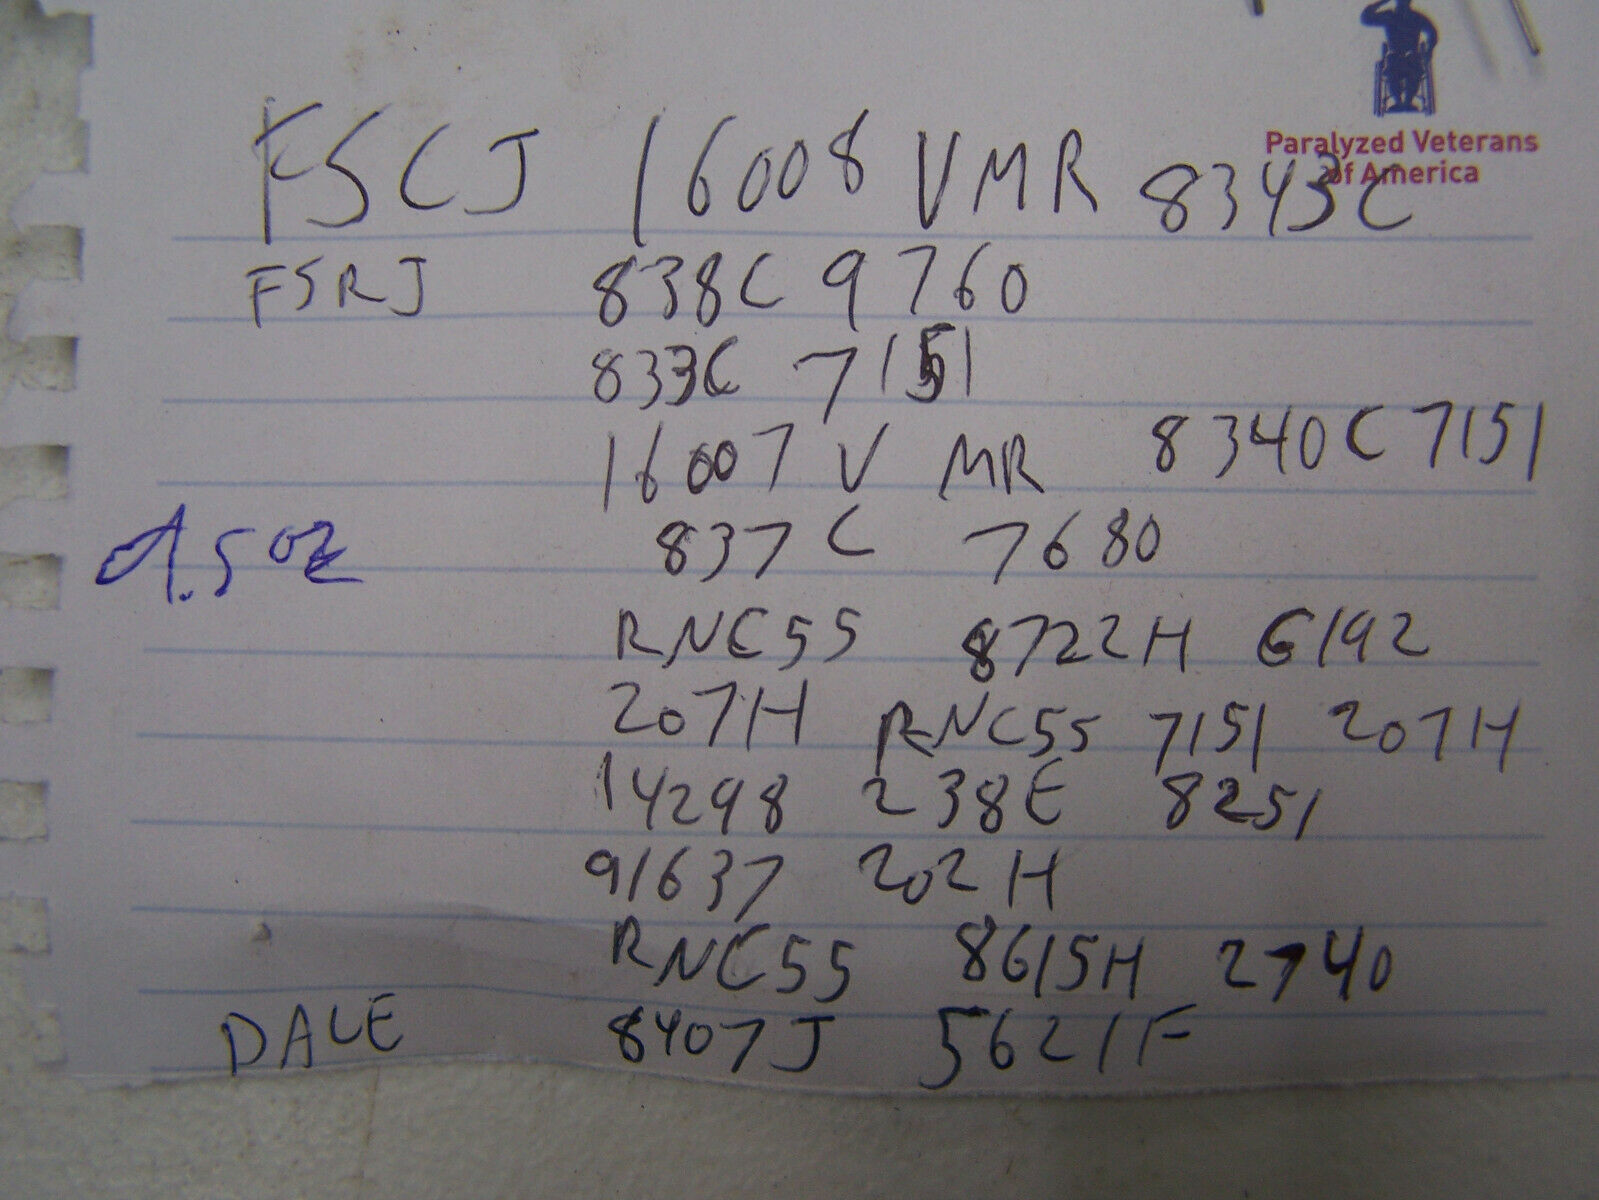 Paralyzed Veterans
of America
FSCJ 16008 VMR 8343C
FSRJ 838C 9760
833C 7151
16007 V MR 8340C 7151
837C 7680
RNC55 8722H 6192
207H RNC55 7151 207H
14298 238E 8251
91637 202H
RNC55 8615H 2740
DALE 8407J 5621F